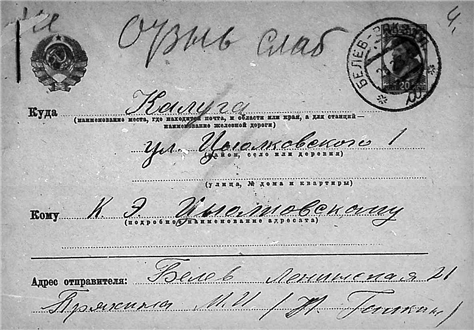 4.
Отзыв слаб
БЕЛЕВ
20
Куда Калуга
(наименование места, где находится почта, и области или края, а для станций—
наименование железной дороги)
ул. Циолковского 1
(район, село или деревня)
(улица, № дома и квартиры)
Кому К Э Циолковскому
(подробное наименование адресата)
Адрес отправителя: Белев Ленинская 21
М. И.